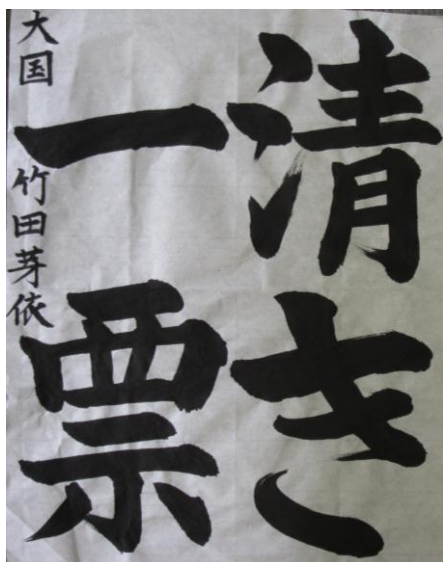 清き
一票
大国 竹田芽依